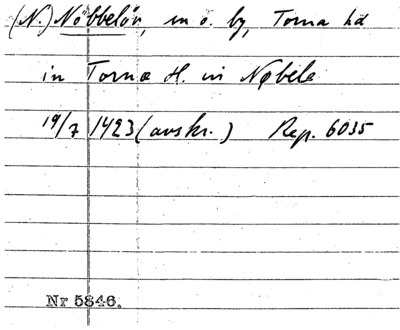 (N.) Nöbbelöv, sn o. by, Torna hd
in Torna H. in Nøbele
19/7 1423 (avskr.) Rep. 6035
Nr 5846.